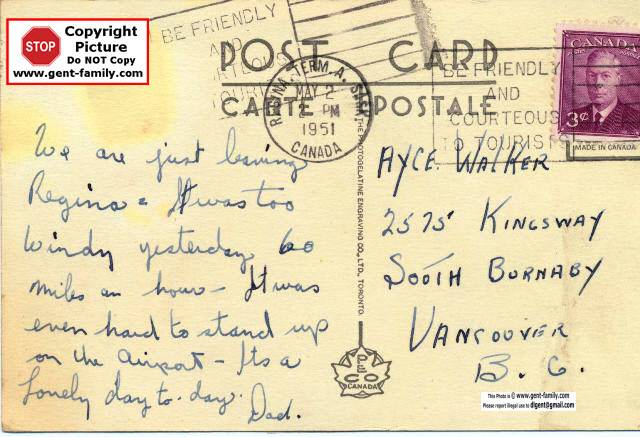 STOP
Copyright
Picture
Do NOT COPY
www.gent-family.com
BE FRIENDLY
AND
COURTEOUS
TO TOURISTS
POST CARD
CARTE POSTALE
REGINA TERM. A. SASK
MAY 2
2 PM
1951
CANADA
BE FRIENDLY
AND
COURTEOUS
TO TOURISTS
CANADA
3¢
MADE IN CANADA
We are just leaving
Regina & It was too
Windy yesterday 60
miles an hour - It was
even hard to stand up
on the Airport - Its a
lovely day to-day.
Dad.
THE PHOTOGELATINE ENGRAVING CO., LTD., TORONTO.
PECO
CANADA
AYCE WALKER
2575 KINGSWAY
SOOTH BURNABY
VANCOUVER
B. C.
This Photo is © www.gent-family.com
Please report illegal use to digent@gmail.com